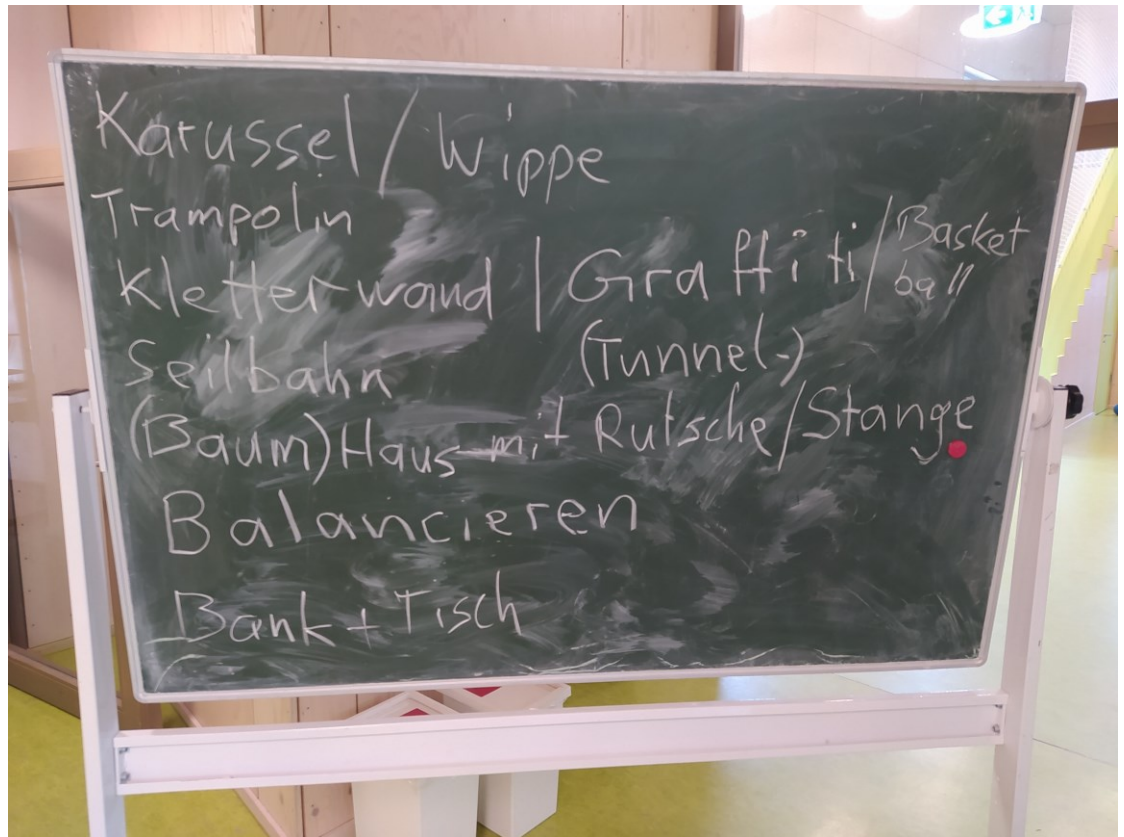 Karussel / Wippe
Trampolin
Kletterwand | Graffiti / Basket
ball
Seilbahn (Tunnel-)
(Baum) Haus mit Rutsche / Stange
Balancieren
Bank + Tisch